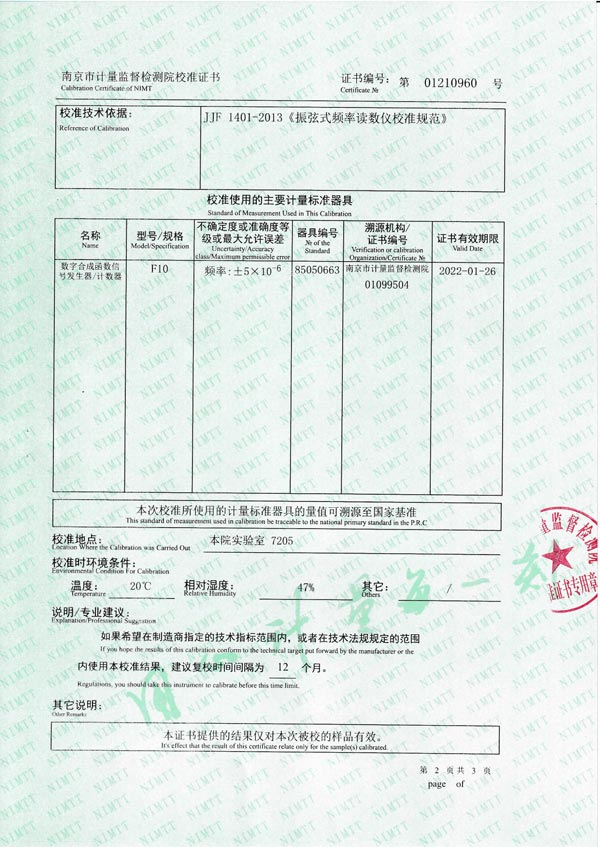 南京市计量监督检测院校准证书
Calibration Certificate of NIMT
证书编号: 第 01210960 号
Certificate №
校准技术依据:
Reference of Calibration
JJF 1401-2013《振弦式频率读数仪校准规范》
校准使用的主要计量标准器具
Standard of Measurement Used in This Calibration
名称
Name
型号/规格
Model/Specification
不确定度或准确度等
级或最大允许误差
Uncertainty/Accuracy
class/Maximum permissible error
器具编号
№ of the
Standard
溯源机构/
证书编号
Verification or calibration
Organization/Certificate №
证书有效期限
Valid Date
数字合成函数信
号发生器/计数器
F10
频率:±5×10⁻⁶
85050663
南京市计量监督检测院
01099504
2022-01-26
本次校准所使用的计量标准器具的量值可溯源至国家基准
This standard of measurement used in calibration be traceable to the national primary standard in the P.R.C
校准地点:
Location Where the Calibration was Carried Out
本院实验室 7205
校准时环境条件:
Environmental Condition For Calibration
温度: 20℃ 相对湿度: 47% 其它: /
Temperature Relative Humidity Others
说明/专业建议:
Explanation/Professional Suggestion
如果希望在制造商指定的技术指标范围内，或者在技术法规规定的范围
If you hope the results of this calibration conform to the technical target put forward by the manufacturer or the
内使用本校准结果，建议复校时间间隔为 12 个月。
Regulations, you should take this instrument to calibrate before this time limit.
其它说明:
Other Remarks
本证书提供的结果仅对本次被校的样品有效。
It's effect that the result of this certificate relate only for the sample(s) calibrated.
第 2 页共 3 页
page of
量监督检测院
证书专用章
NIMTT